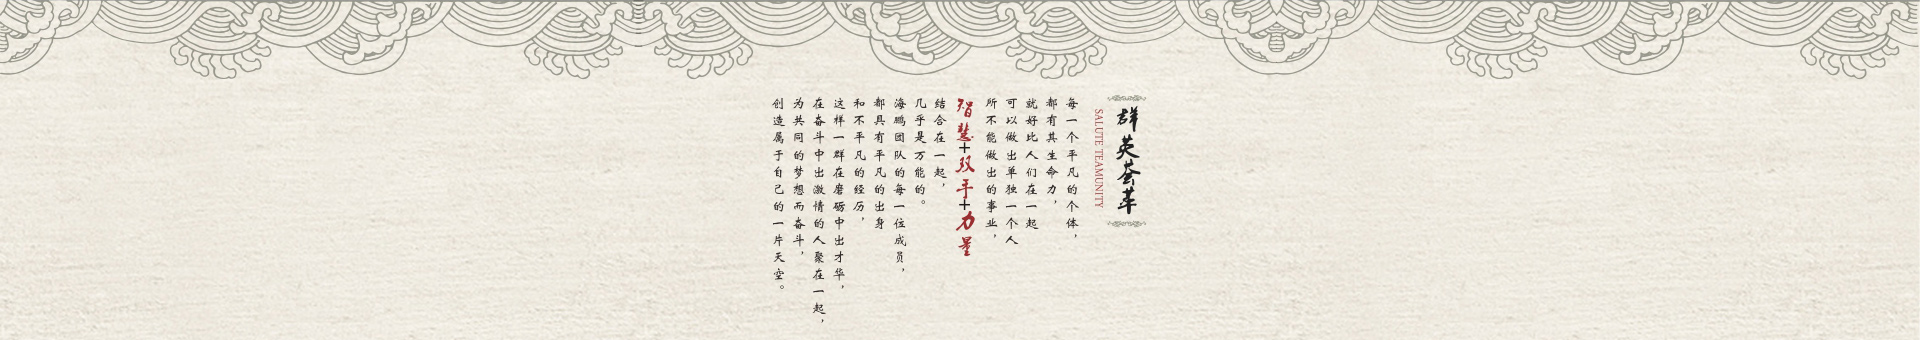 群英荟萃
SALUTE TEAMUNITY
每一个平凡的个体，
都有其生命力，
就好比人们在一起
可以做出单独一个人
所不能做出的事业，
智慧+双手+力量
结合在一起，
几乎是万能的。
海鹏团队的每一位成员，
都具有平凡的出身
和不平凡的经历，
这样一群在磨砺中出才华，
在奋斗中出激情的人聚在一起，
为共同的梦想而奋斗，
创造属于自己的一片天空。